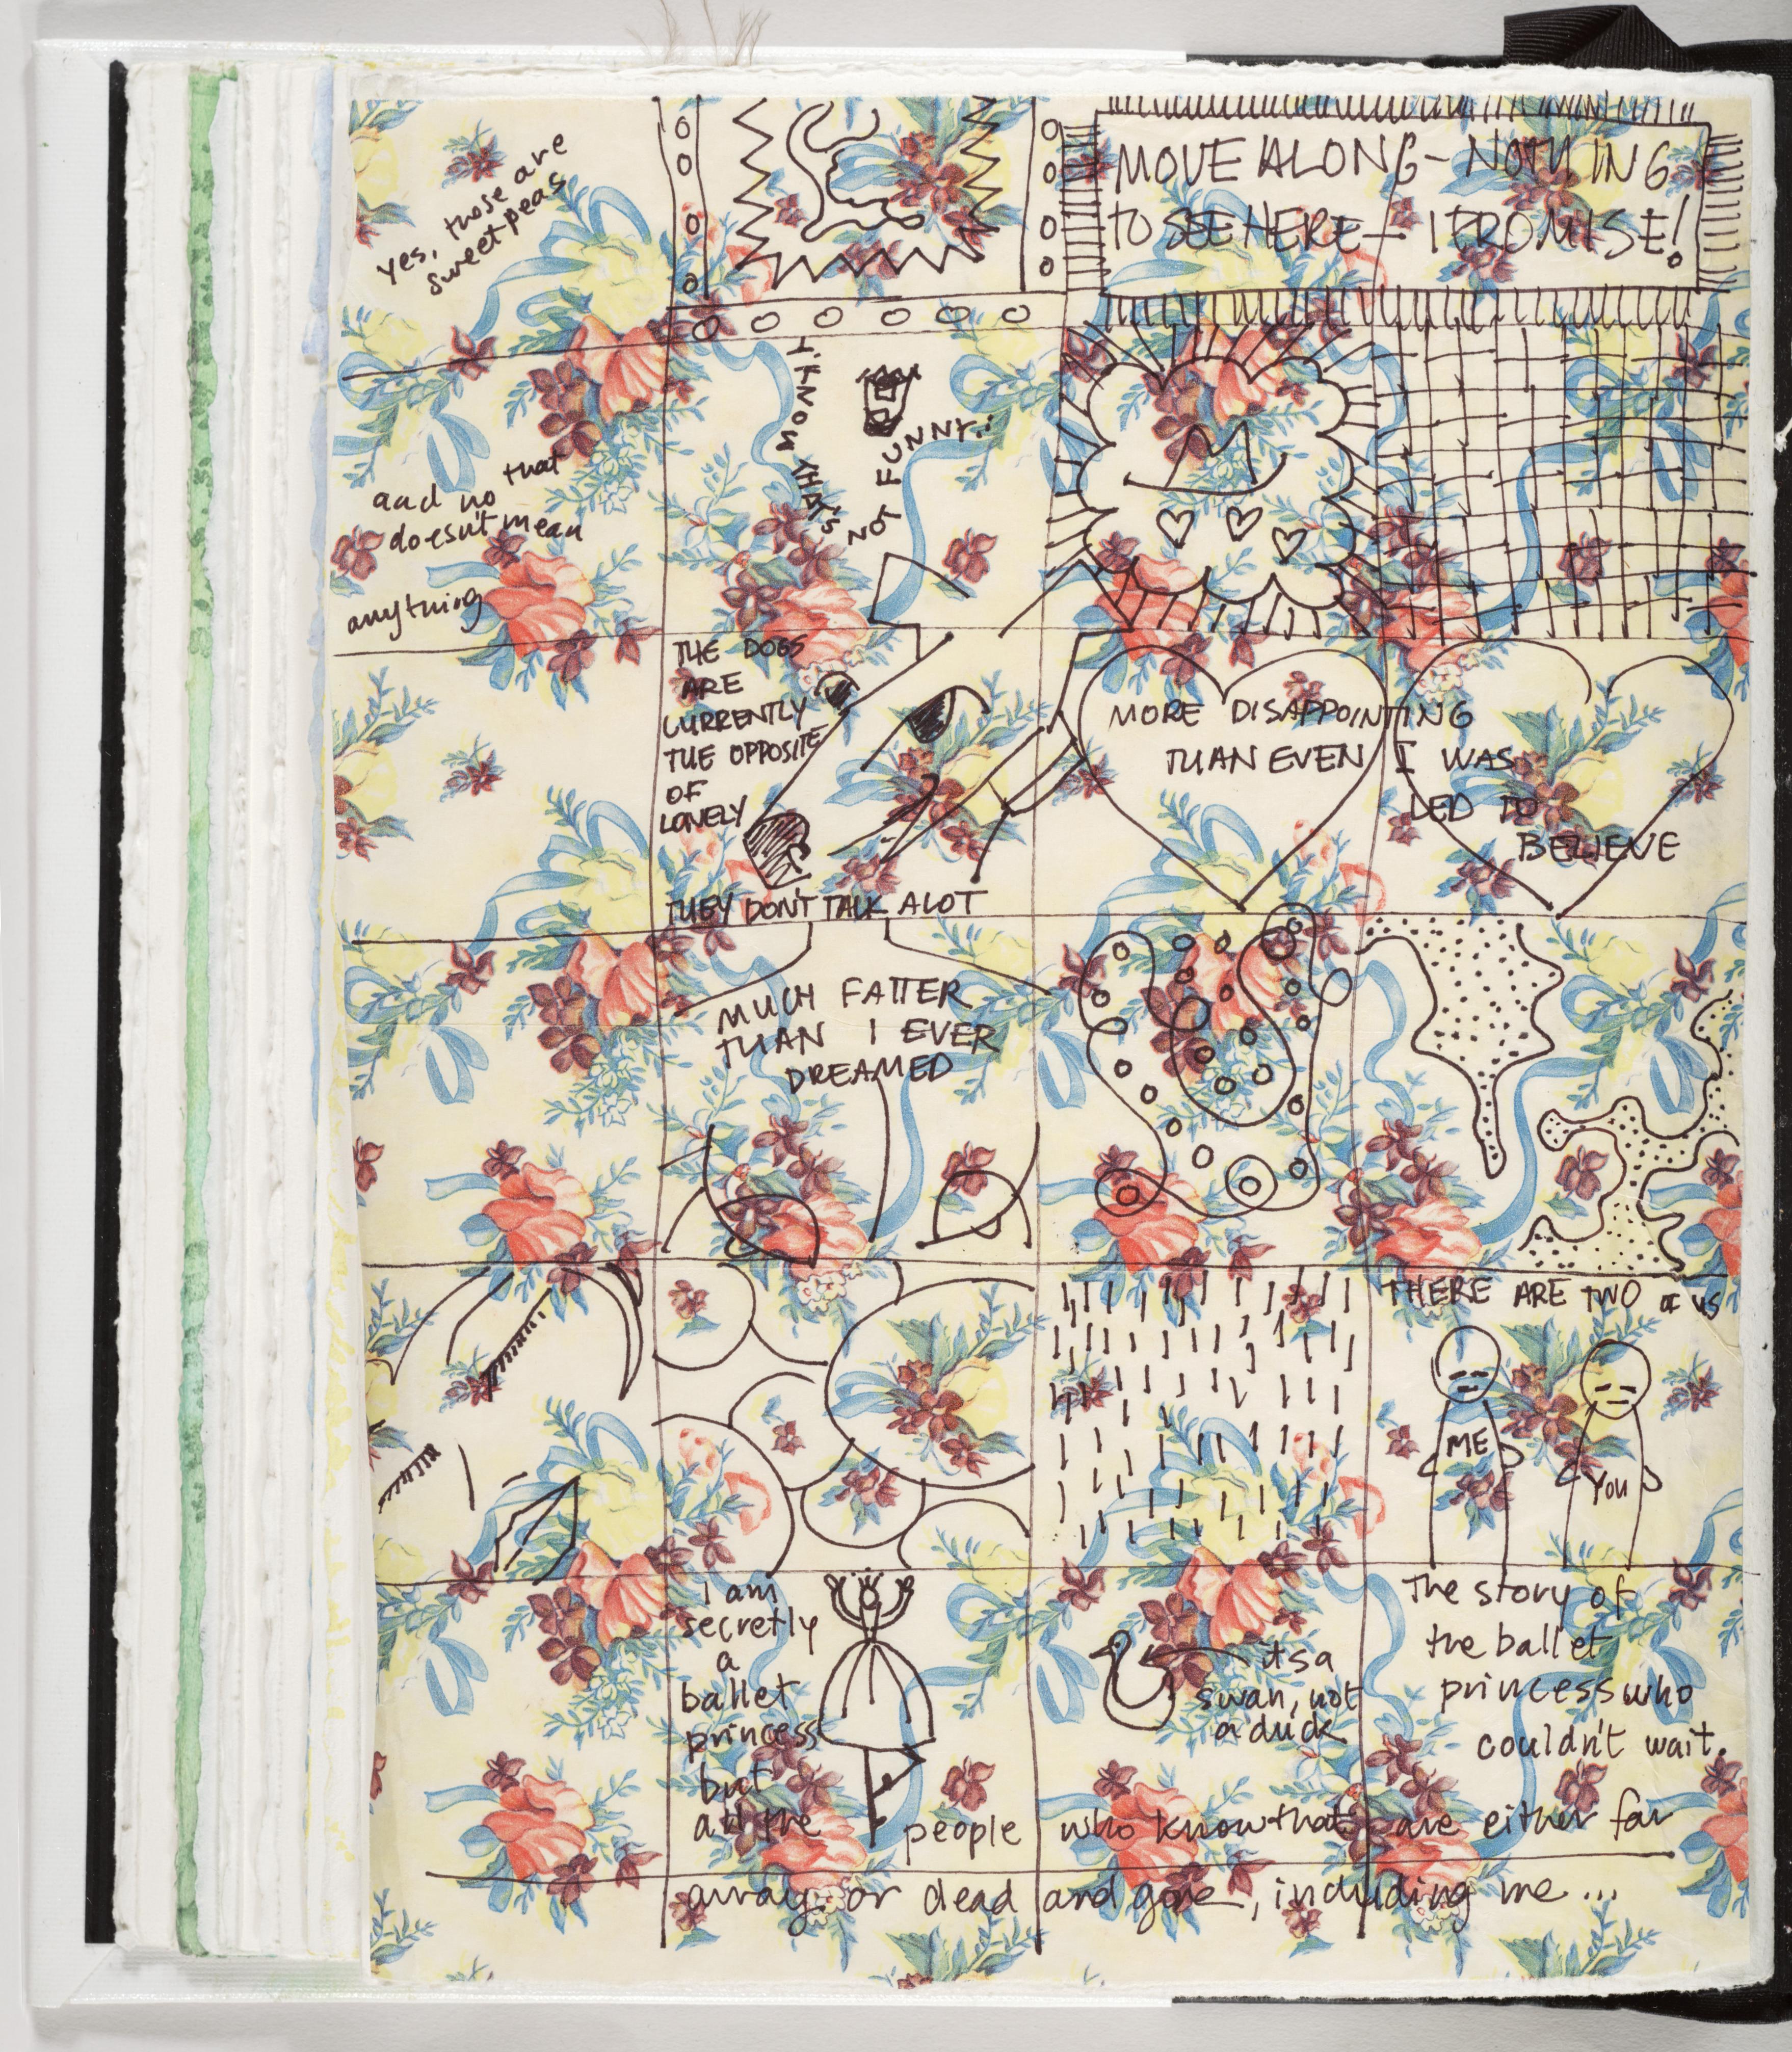 yes, those are
sweet peas
MOVE ALONG - NOTHING
TO SEE HERE - I PROMISE!
and no that
doesn't mean
anything
Y'KNOW THAT'S NOT FUNNY..
THE DOGS
ARE
CURRENTLY
THE OPPOSITE
OF
LONELY
THEY DON'T TALK A LOT
MORE DISAPPOINTING
THAN EVEN I WAS
LED TO
BELIEVE
MUCH FATTER
THAN I EVER
DREAMED
THERE ARE TWO OF US
ME
YOU
I am
secretly
a
ballet
princess
but
all the people who know that are either far
away or dead and gone, including me...
itsa
swan, not
a duck
The story of
the ballet
princess who
couldn't wait.